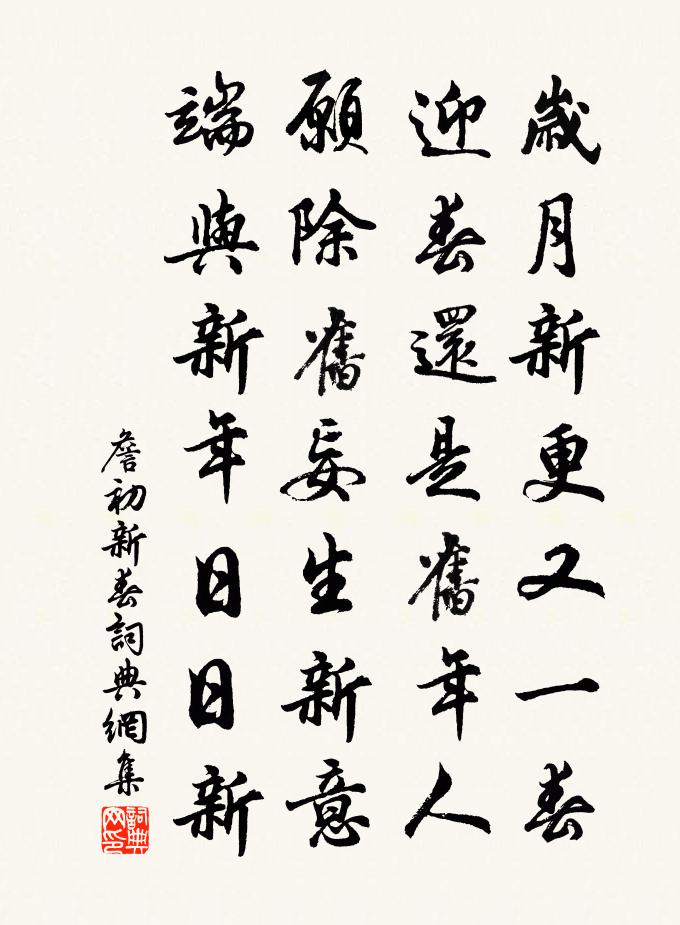 歲月新更又一春
迎春還是舊年人
願除舊妄生新意
端與新年日日新
詹初新春詞典網集
詞典网印